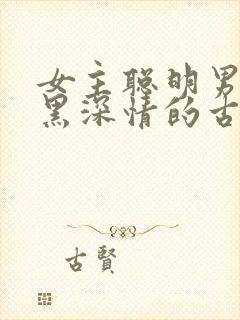 女主聪明男
黑深情的古
古賢